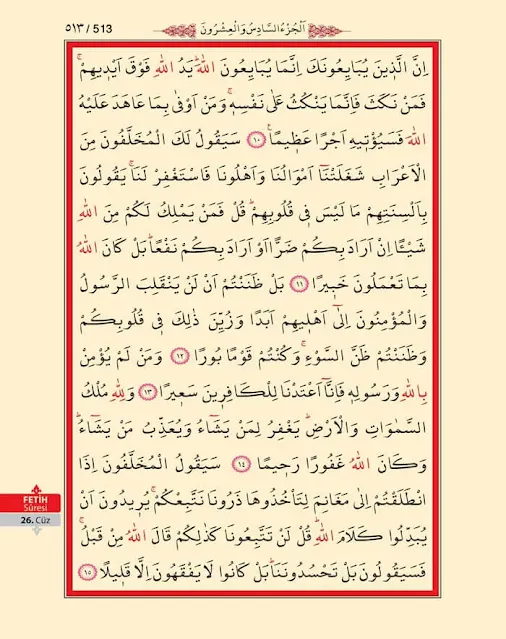 ٥١٣ / 513
اَلْجُزْءُ السَّادِسُ وَالْعِشْرُونَ
اِنَّ الَّذ۪ينَ يُبَايِعُونَكَ اِنَّمَا يُبَايِعُونَ اللّٰهَۜ يَدُ اللّٰهِ فَوْقَ اَيْد۪يهِمْۚ
فَمَنْ نَكَثَ فَاِنَّمَا يَنْكُثُ عَلٰى نَفْسِه۪ۚ وَمَنْ اَوْفٰى بِمَا عَاهَدَ عَلَيْهُ
اللّٰهَ فَسَيُؤْت۪يهِ اَجْرًا عَظ۪يمًا۟ ﴿١٠﴾ سَيَقُولُ لَكَ الْمُخَلَّفُونَ مِنَ
الْاَعْرَابِ شَغَلَتْنَٓا اَمْوَالُنَا وَاَهْلُونَا فَاسْتَغْفِرْ لَنَاۚ يَقُولُونَ
بِاَلْسِنَتِهِمْ مَا لَيْسَ ف۪ي قُلُوبِهِمْۜ قُلْ فَمَنْ يَمْلِكُ لَكُمْ مِنَ اللّٰهِ
شَيْـًٔا اِنْ اَرَادَ بِكُمْ ضَرًّا اَوْ اَرَادَ بِكُمْ نَفْعًاۜ بَلْ كَانَ اللّٰهُ
بِمَا تَعْمَلُونَ خَب۪يرًا ﴿١١﴾ بَلْ ظَنَنْتُمْ اَنْ لَنْ يَنْقَلِبَ الرَّسُولُ
وَالْمُؤْمِنُونَ اِلٰٓى اَهْل۪يهِمْ اَبَدًا وَزُيِّنَ ذٰلِكَ ف۪ي قُلُوبِكُمْ
وَظَنَنْتُمْ ظَنَّ السَّوْءِۚ وَكُنْتُمْ قَوْمًا بُورًا ﴿١٢﴾ وَمَنْ لَمْ يُؤْمِنْ
بِاللّٰهِ وَرَسُولِه۪ فَاِنَّٓا اَعْتَدْنَا لِلْكَافِر۪ينَ سَع۪يرًا ﴿١٣﴾ وَلِلّٰهِ مُلْكُ
السَّمٰوَاتِ وَالْاَرْضِۜ يَغْفِرُ لِمَنْ يَشَٓاءُ وَيُعَذِّبُ مَنْ يَشَٓاءُۜ
وَكَانَ اللّٰهُ غَفُورًا رَح۪يمًا ﴿١٤﴾ سَيَقُولُ الْمُخَلَّفُونَ اِذَا
انْطَلَقْتُمْ اِلٰى مَغَانِمَ لِتَأْخُذُوهَا ذَرُونَا نَتَّبِعْكُمْۚ يُر۪يدُونَ اَنْ
يُبَدِّلُوا كَلَامَ اللّٰهِۜ قُلْ لَنْ تَتَّبِعُونَا كَذٰلِكُمْ قَالَ اللّٰهُ مِنْ قَبْلُۚ
فَسَيَقُولُونَ بَلْ تَحْسُدُونَنَاۜ بَلْ كَانُوا لَا يَفْقَهُونَ اِلَّا قَل۪يلًا ﴿١٥﴾
FETİH
Sûresi
26. Cüz